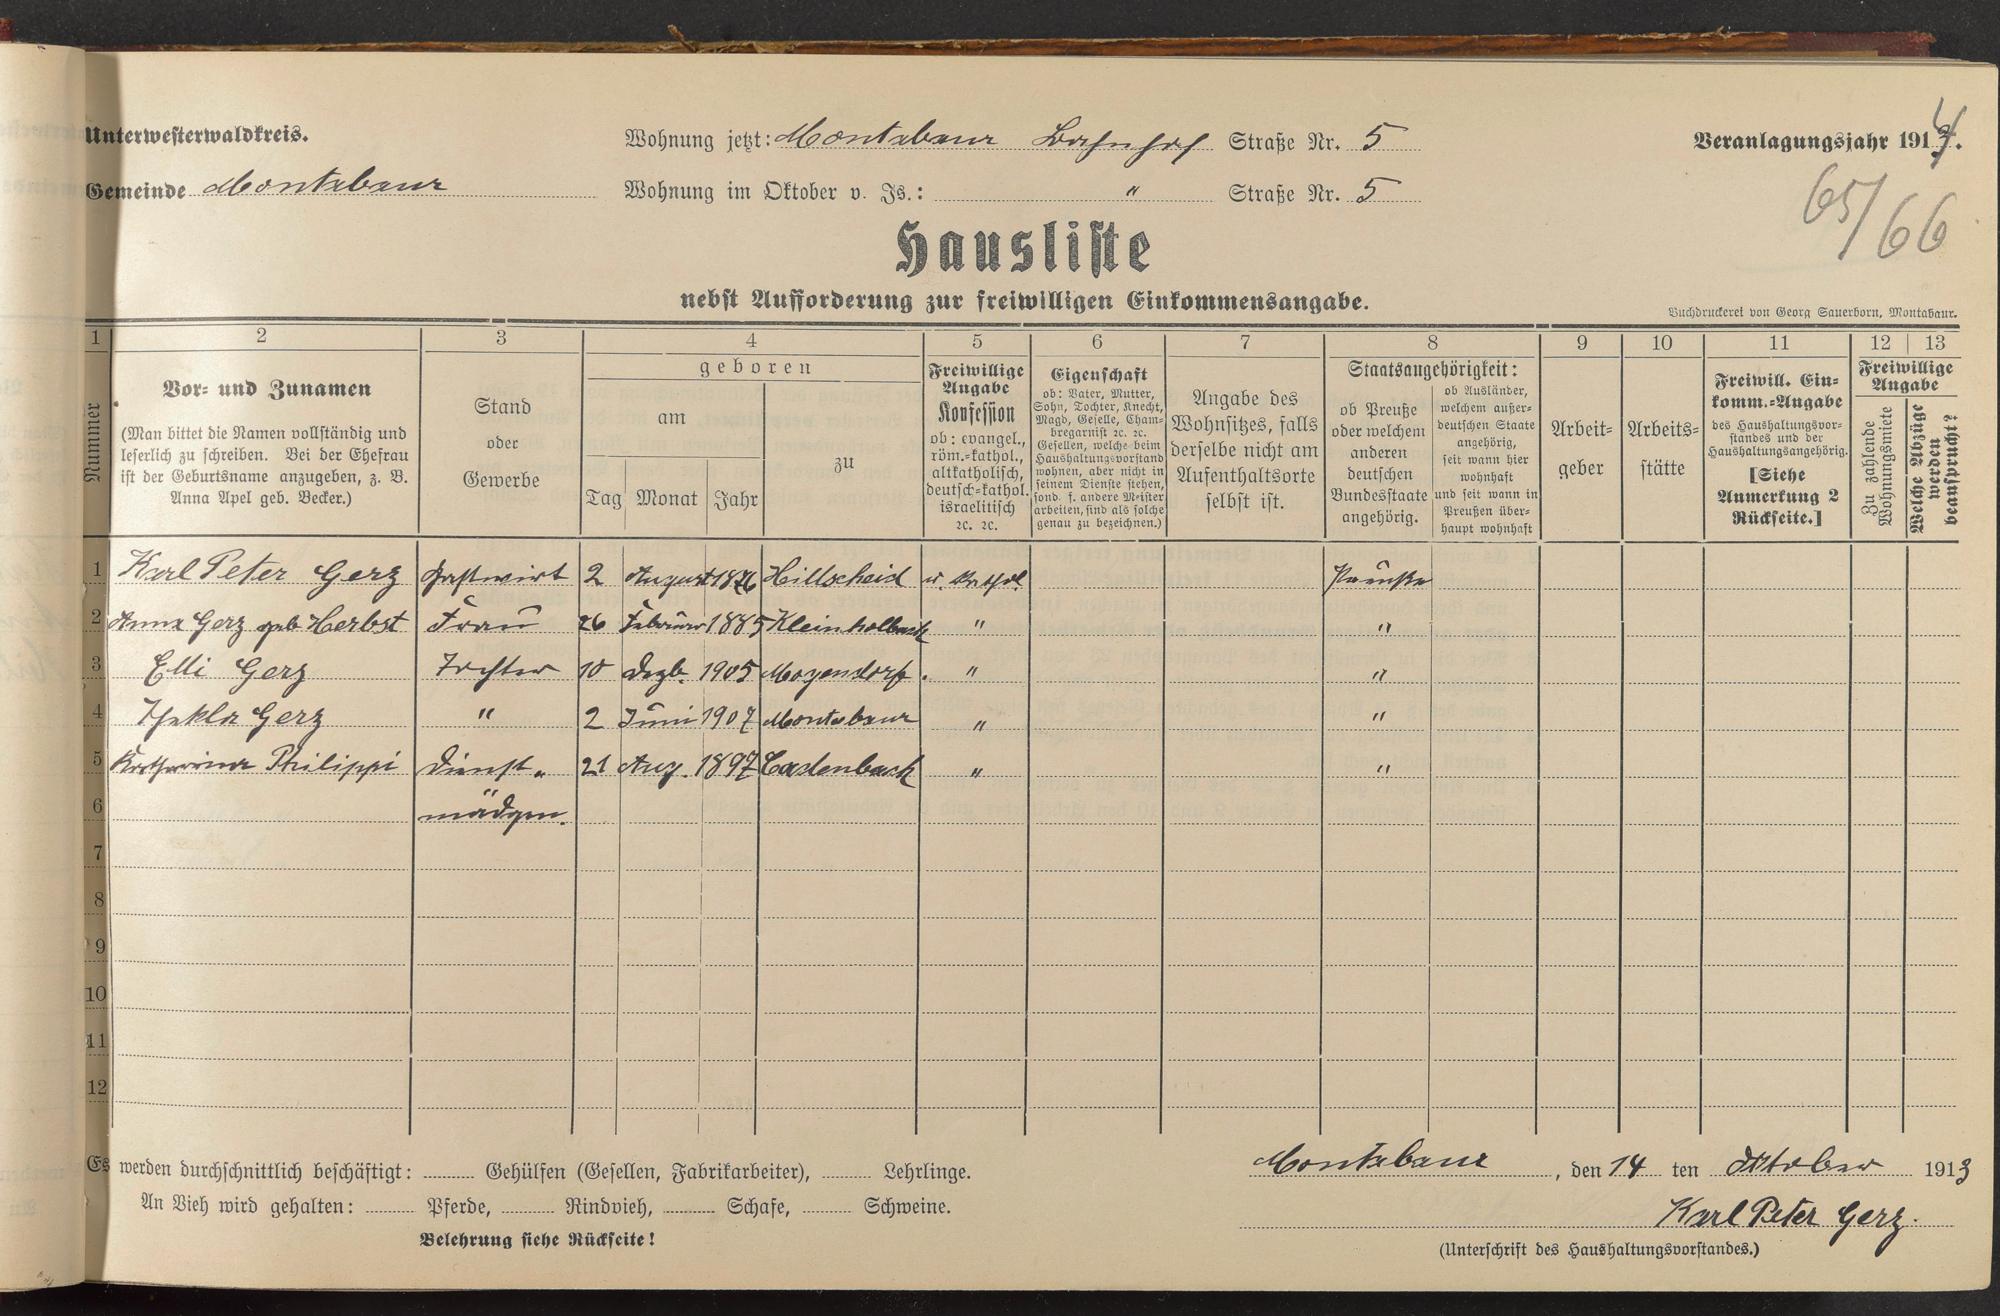 Unterwesterwaldkreis.
Wohnung jetzt: Montabaur Bahnhof Straße Nr. 5
Veranlagungsjahr 1914.
Gemeinde Montabaur
Wohnung im Oktober v. Js.: " Straße Nr. 5
65/66
Hausliste
nebst Aufforderung zur freiwilligen Einkommensangabe.
Buchdruckerei von Georg Sauerborn, Montabaur.
1 2 3 4 5 6 7 8 9 10 11 12 13
Nummer
Vor- und Zunamen
(Man bittet die Namen vollständig und
leserlich zu schreiben. Bei der Ehefrau
ist der Geburtsname anzugeben, z. B.
Anna Apel geb. Becker.)
Stand
oder
Gewerbe
geboren
am
Tag Monat Jahr
zu
Freiwillige
Angabe
Konfession
ob: evangel.,
röm.-kathol.,
altkatholisch,
deutsch-kathol.
israelitisch
2c. 2c.
Eigenschaft
ob: Vater, Mutter,
Sohn, Tochter, Knecht,
Magd, Geselle, Cham-
bregarnist 2c. 2c.
Gesellen, welche beim
Haushaltungsvorstand
wohnen, aber nicht in
seinem Dienste stehen,
sond. f. andere Meister
arbeiten, sind als solche
genau zu bezeichnen.)
Angabe des
Wohnsitzes, falls
derselbe nicht am
Aufenthaltsorte
selbst ist.
Staatsangehörigkeit:
ob Preuße
oder welchem
anderen
deutschen
Bundesstaate
angehörig.
ob Ausländer,
welchem außer-
deutschen Staate
angehörig,
seit wann hier
wohnhaft
und seit wann in
Preußen über-
haupt wohnhaft
Arbeit-
geber
Arbeits-
stätte
Freiwill. Ein-
komm.-Angabe
des Haushaltungsvor-
standes und der
Haushaltungsangehörig.
[Siehe
Anmerkung 2
Rückseite.]
Freiwillige
Angabe
Zu zahlende
Wohnungsmiete
Welche Abzüge
werden
beansprucht?
1 Karl Peter Gerz Gastwirt 2 August 1876 Hillscheid r. Kathol. Preuße
2 Anna Gerz geb Herbst Frau 26 Februar 1885 Kleinholbach " "
3 Elli Gerz Tochter 10 Dezb. 1905 Mogendorf. " "
4 Thekla Gerz " 2 Juni 1907 Montabaur " "
5 Katharina Philippi Dienst- 21 Aug. 1897 Cadenbach " "
6 mädchen.
7
8
9
10
11
12
Es werden durchschnittlich beschäftigt: Gehülfen (Gesellen, Fabrikarbeiter), Lehrlinge.
Montabaur, den 14 ten Oktober 1913
An Vieh wird gehalten: Pferde, Rindvieh, Schafe, Schweine.
Karl Peter Gerz.
Belehrung siehe Rückseite!
(Unterschrift des Haushaltungsvorstandes.)